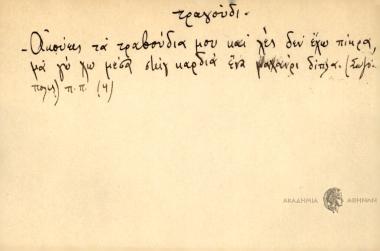 τραγούδι.
- Ἀκούτες τὰ τραβούδια μου καὶ λὲς δὲν ἔχω πίκρα,
μὰ γὼ ἔχω μέσα στὴν καρδιὰ ἕνα μαχαίρι δίπλα. (Σωζό-
πολις) π. π. (4)
ΑΚΑΔΗΜΙΑ ΑΘΗΝΩΝ